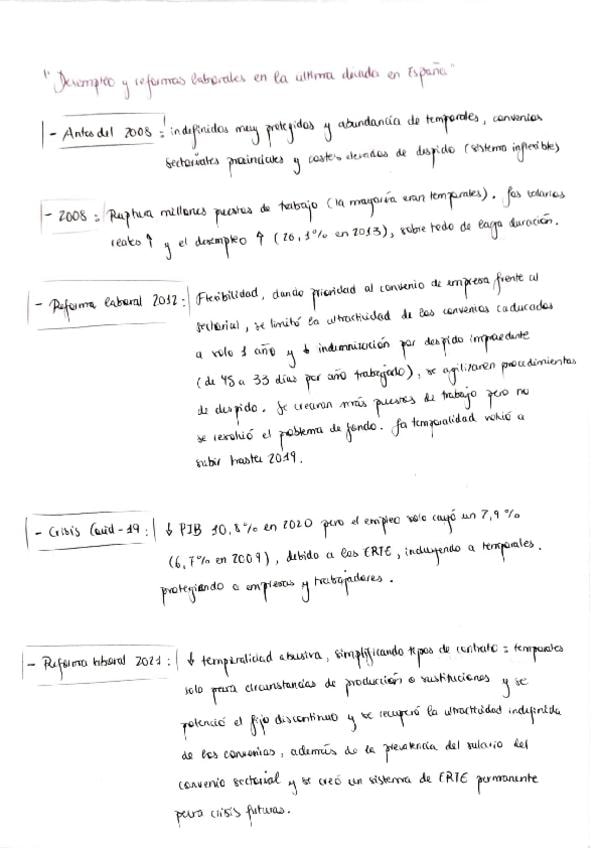 "Desempleo y reformas laborales en la última década en España"
- Antes del 2008: indefinidos muy protegidos y abundancia de temporales, convenios
sectoriales provinciales y costes elevados de despido (sistema inflexible)
- 2008: Ruptura millones puestos de trabajo (la mayoría eran temporales). Los salarios
reales ↑ y el desempleo ↑ (26,1% en 2013), sobre todo de larga duración.
- Reforma laboral 2012: Flexibilidad, dando prioridad al convenio de empresa frente al
sectorial, se limitó la ultractividad de los convenios caducados
a solo 1 año y ↓ indemnización por despido improcedente
(de 45 a 33 días por año trabajado), se agilizaron procedimientos
de despido. Se crearon más puestos de trabajo pero no
se resolvió el problema de fondo. La temporalidad volvió a
subir hasta 2019.
- Crisis Covid-19: ↓ PIB 10,8% en 2020 pero el empleo solo cayó un 2,9%
(6,7% en 2009), debido a los ERTE, incluyendo a temporales.
protegiendo a empresas y trabajadores.
- Reforma laboral 2021: ↓ temporalidad abusiva, simplificando tipos de contrato: temporales
solo para circunstancias de producción o sustituciones y se
potenció el fijo discontinuo y se recuperó la ultractividad indefinida
de los convenios, además de la prevalencia del salario del
convenio sectorial y se creó un sistema de ERTE permanente
para crisis futuras.